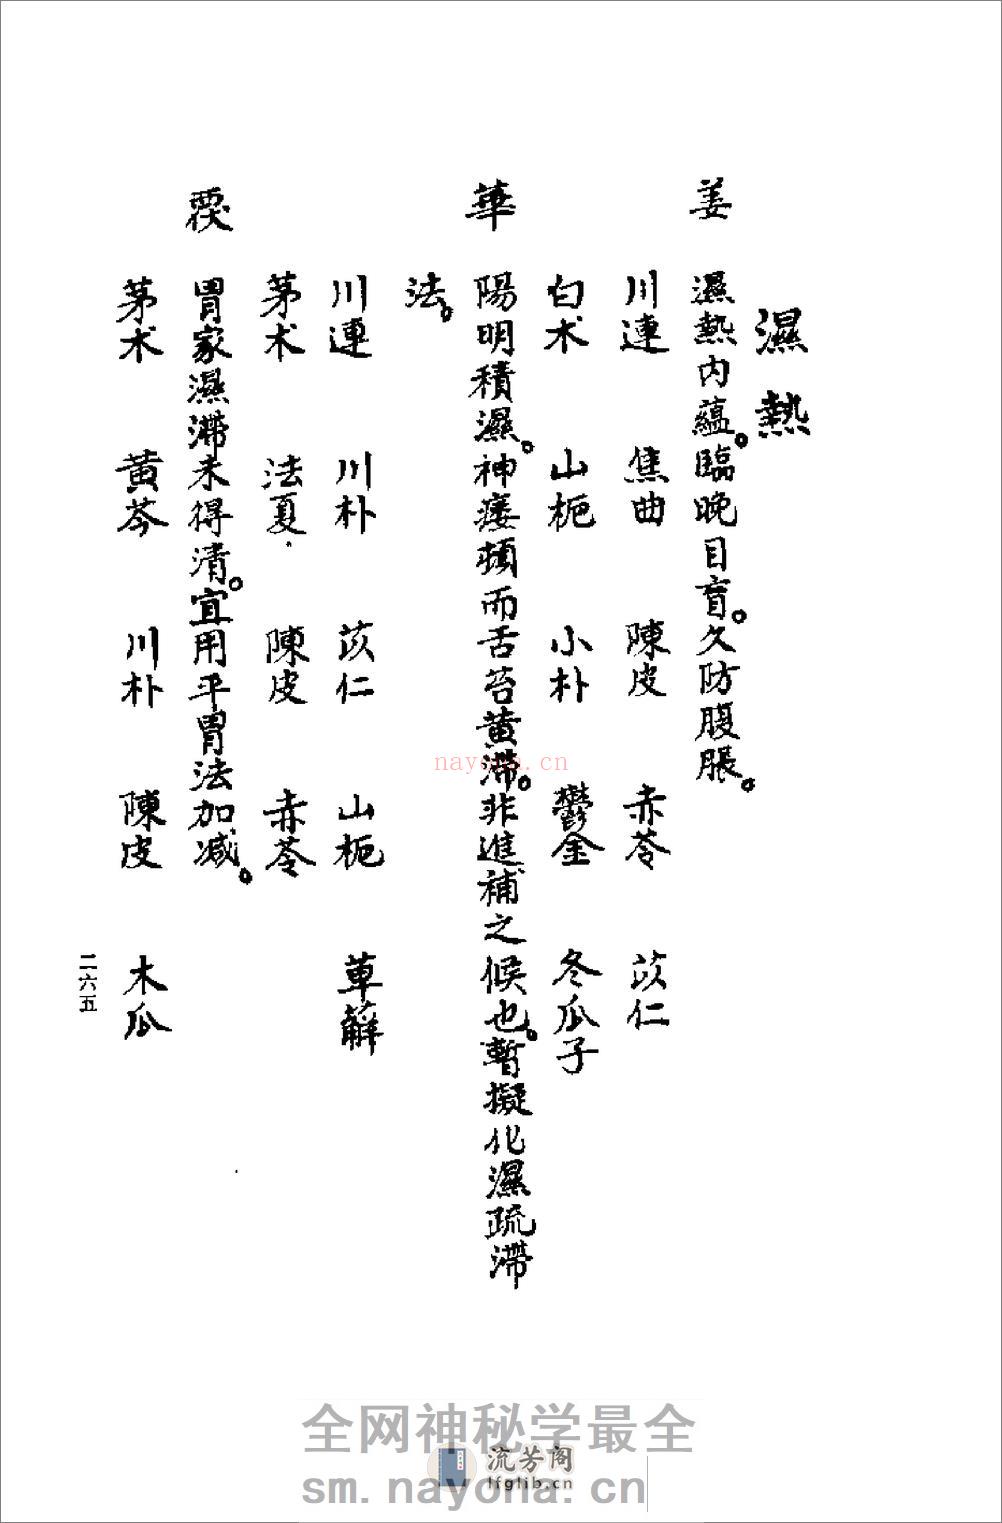 濕熱
姜 濕熱內蘊。臨晚目盲。久防腹脹。
川連 焦曲 陳皮 赤苓 苡仁
白朮 山梔 小朴 鬱金 冬瓜子
華 陽明積濕。神痿頓而舌苔黄滯。非進補之候也。暫擬化濕疏滯
法。
川連 川朴 苡仁 山梔 萆薢
茅朮 法夏 陳皮 赤苓
胃家濕滯未得清。宜用平胃法加减。
茅朮 黄芩 川朴 陳皮 木瓜
二六五
nayona.cn
全网神秘学最全
流芳阁
lfglib.cn
sm.nayona.cn